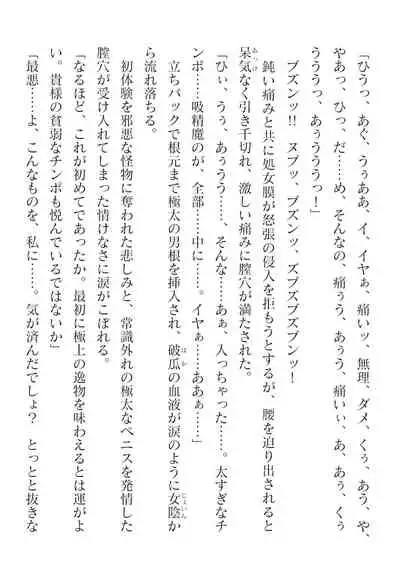 「ひうっ、あぐ、うぅああ、イ、イヤぁ、痛いッ、無理、ダメ、くぅ、あう、や、
やあっ、ひっ、だ……め、そんなの、痛ぅう、あぅう、痛いぃ、あ、あぅ、くぅ
うううっ、あぅうううっ！」
ブズンッ!!　ヌブッ、ブズンッ、ズブズブズブンッ！
鈍い痛みと共に処女膜が怒張の侵入を拒もうとするが、腰を迫り出されると
呆気なく引き千切れ、激しい痛みに膣穴が満たされた。
「ひぃ、うぅ、あぅうう……、そんな……あぁ、入っちゃった……。太すぎなチ
ンポ……吸精魔のが、全部……中に……。イヤぁ……ああぁ……」
立ちバックで根元まで極太の男根を挿入され、破瓜の血液が涙のように女陰か
ら流れ落ちる。
初体験を邪悪な怪物に奪われた悲しみと、常識外れの極太なペニスを発情した
膣穴が受け入れてしまった情けなさに涙がこぼれる。
「なるほど、これが初めてであったか。最初に極上の逸物を味わえるとは運がよ
い。貴様の貧弱なチンポも悦んでいるではないか」
「最悪……よ、こんなものを、私に……。気が済んだでしょ？　とっとと抜きな